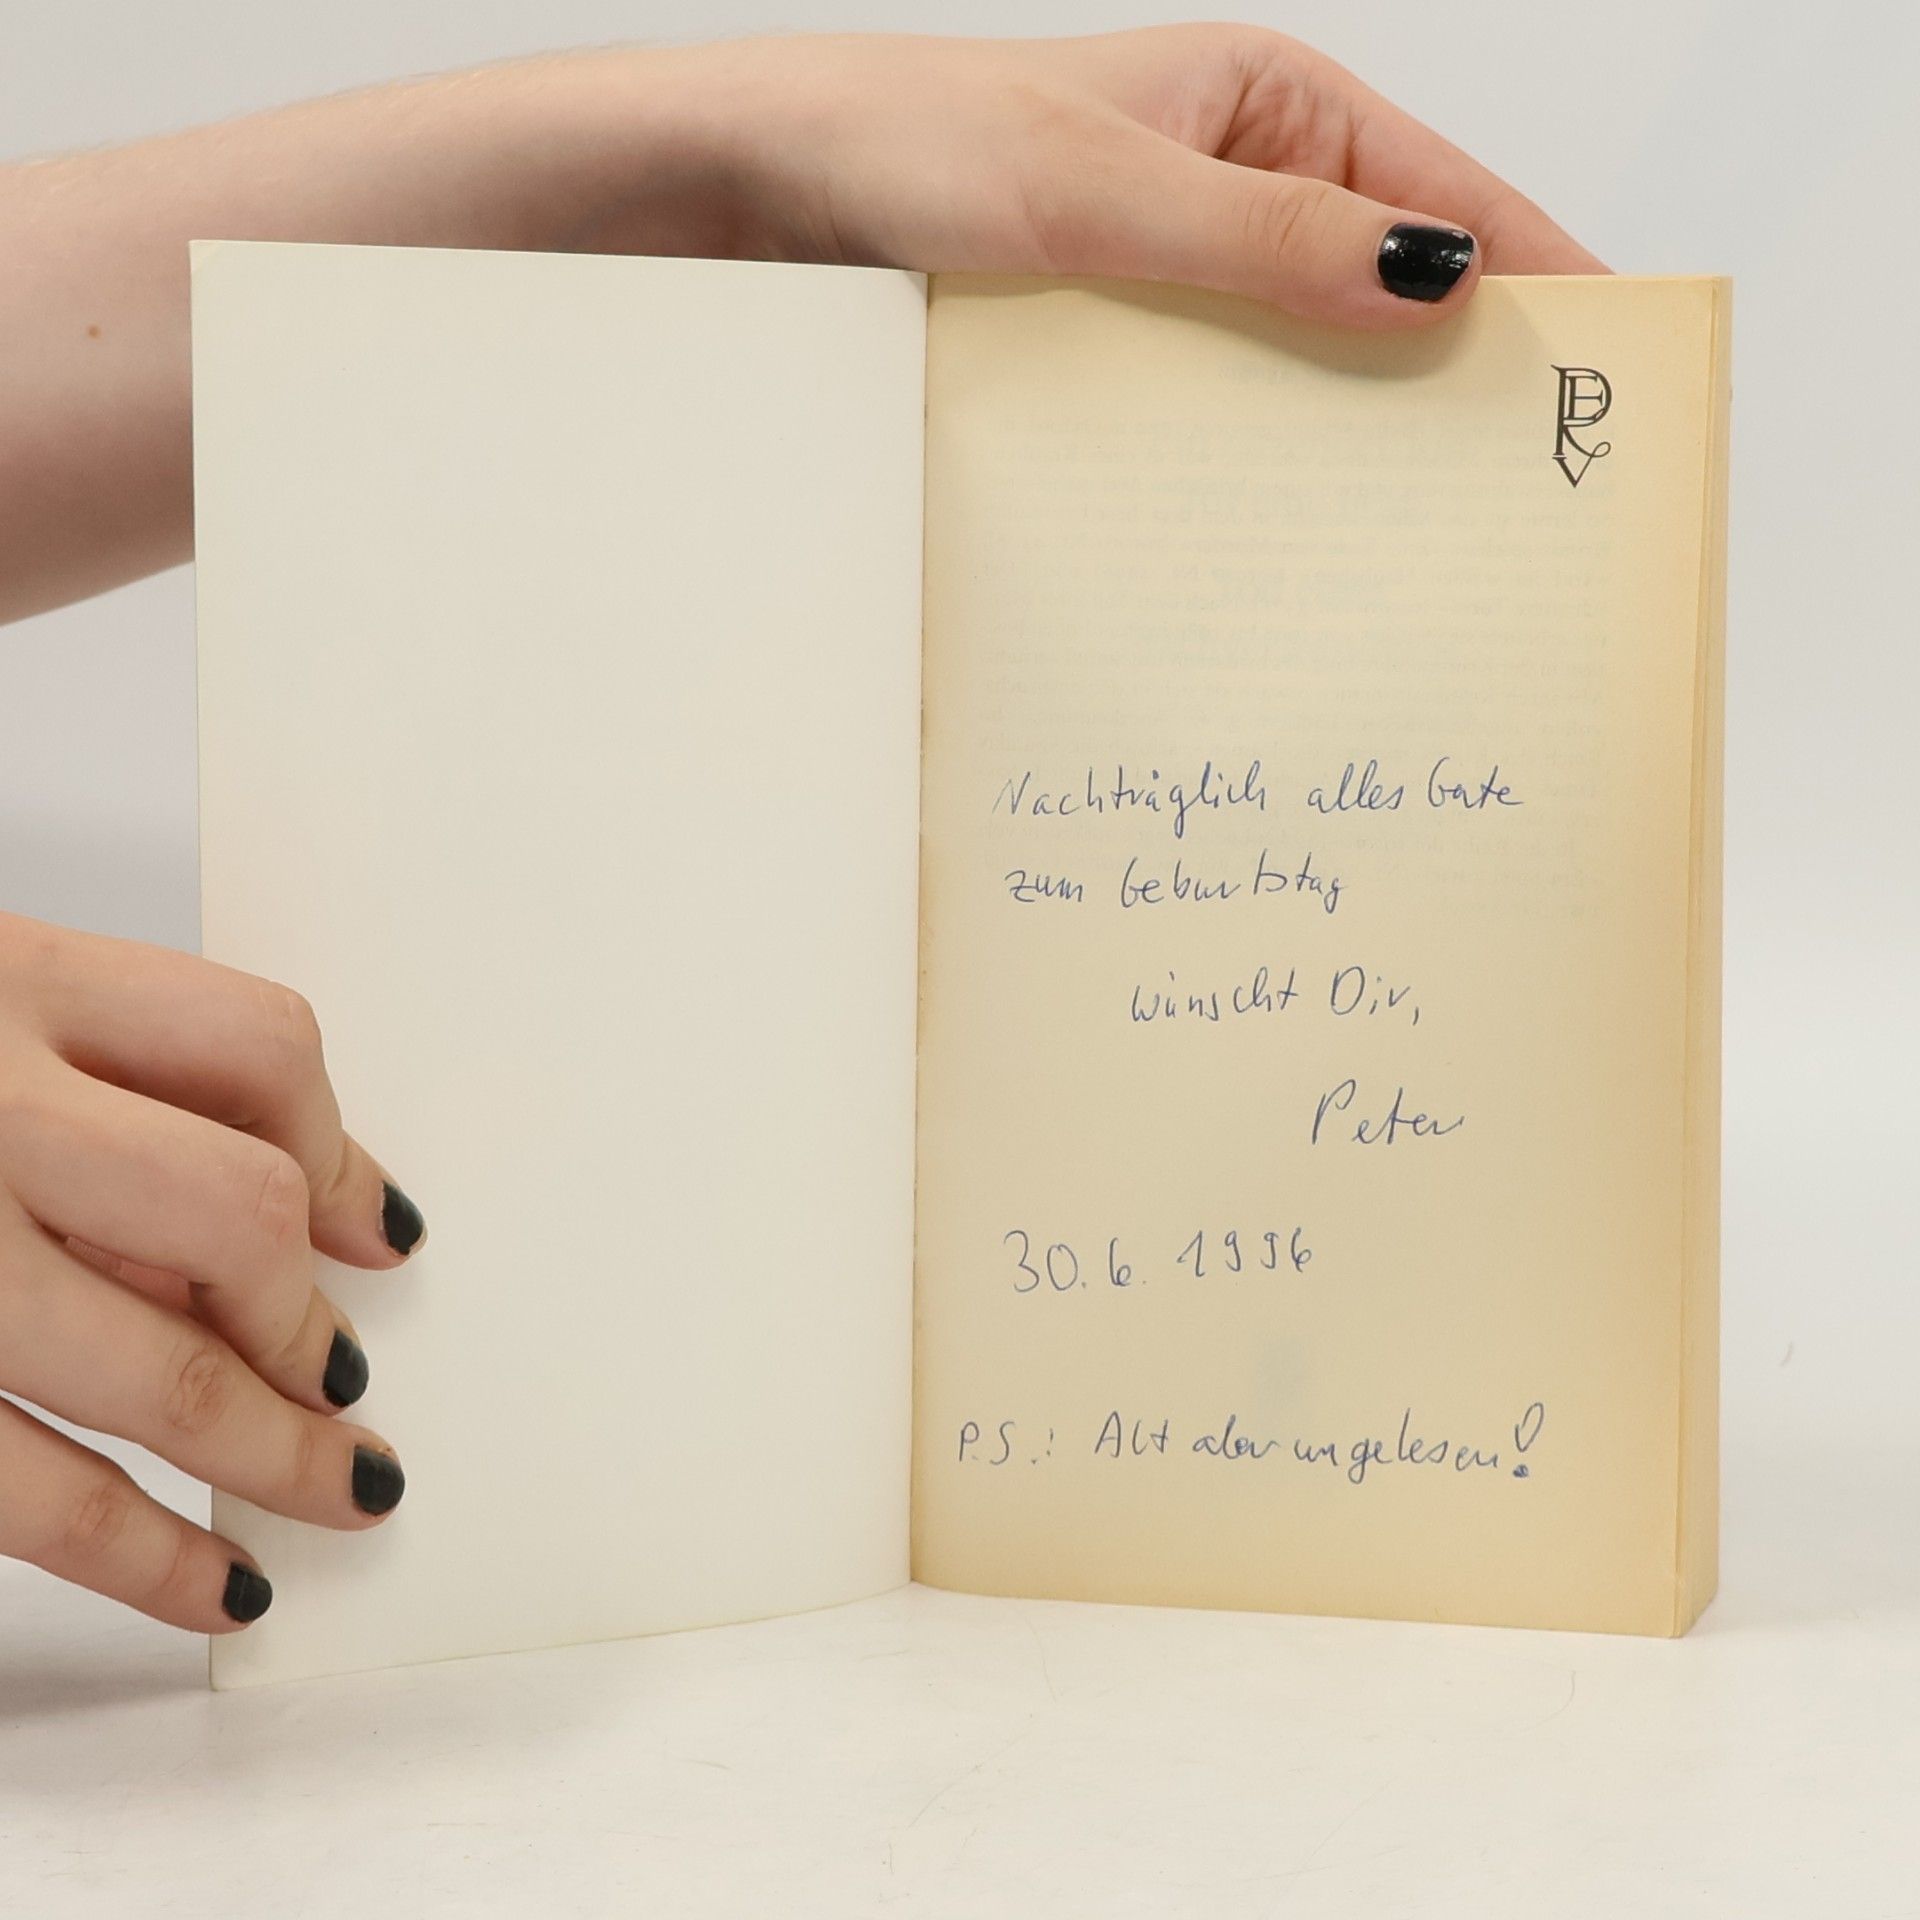 Nachträglich alles Gute
zum Geburtstag
wünscht Dir,
Peter
30.6.1996
P.S.: Alt aber ungelesen!